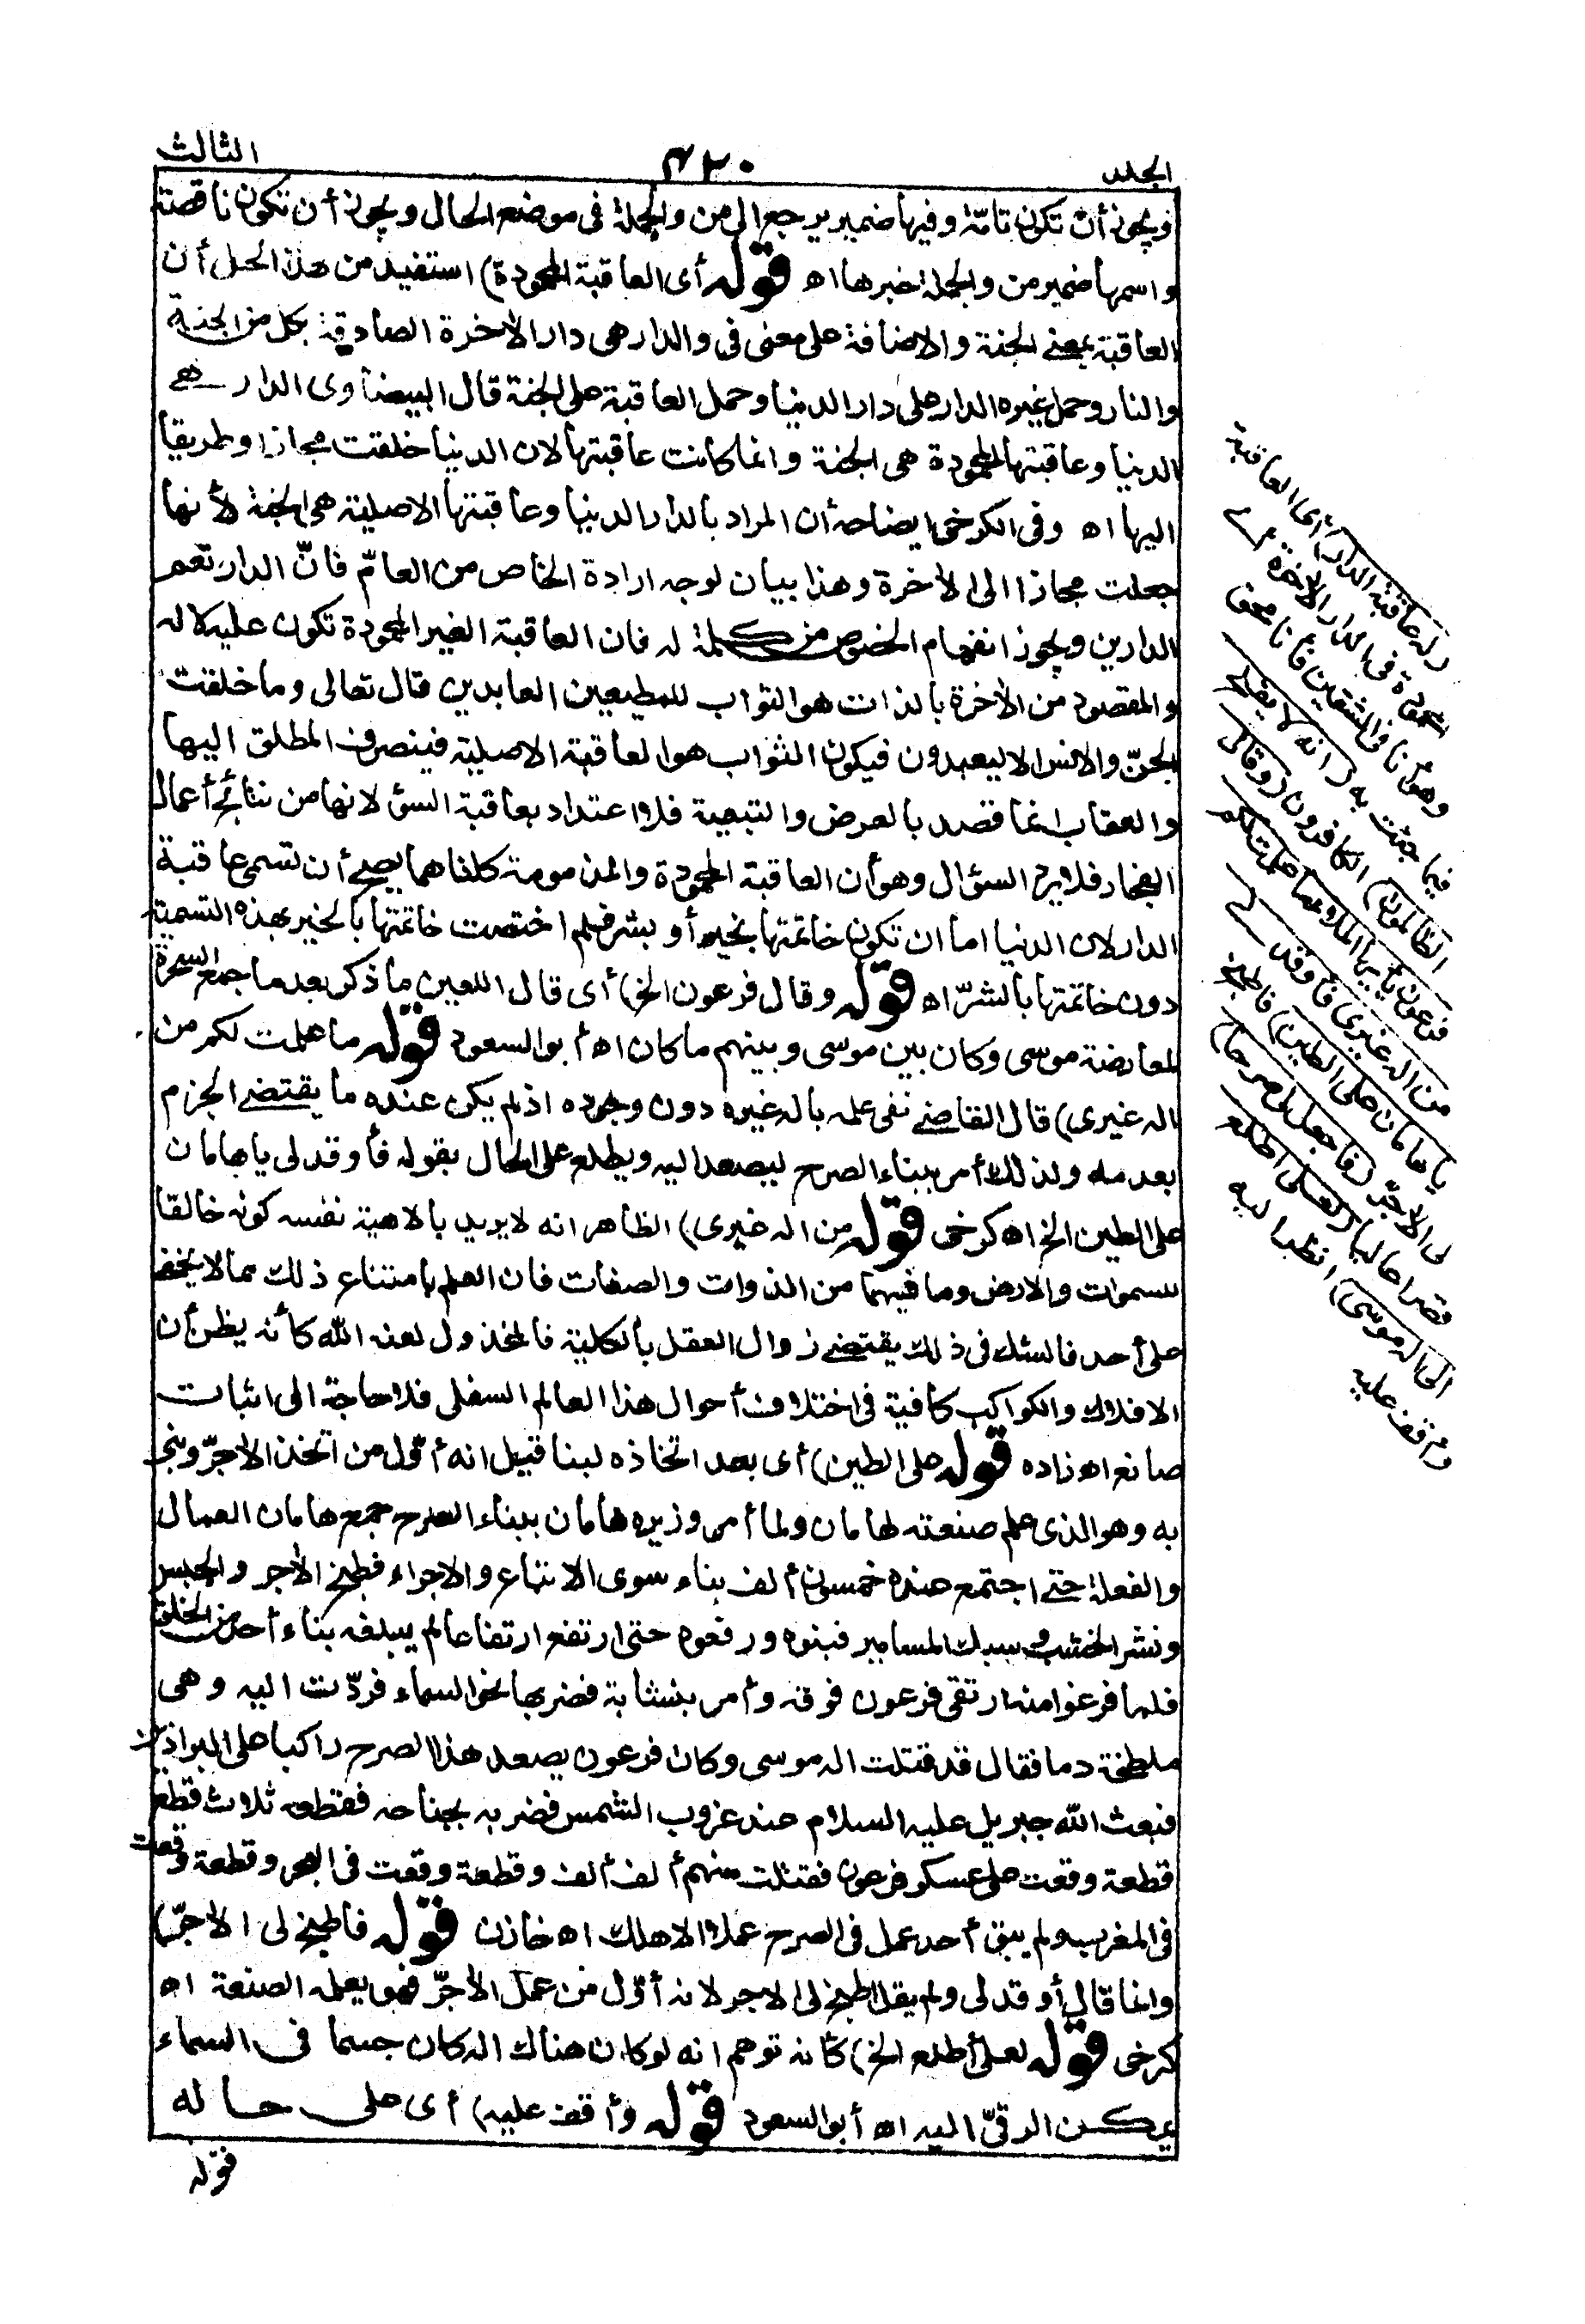 الجلد ٤٢٠ الثالث
ويجوز أن تكون تامّة وفيها ضمير يرجع الى من والجملة فى موضع الحال ويجوز أن تكون ناقصة
واسمها ضمير من والجملة خبرها اه قوله أى العاقبة المحمودة) استفيد من هذا الحل أن
العاقبة بمعنى الجنة والاضافة على معنى فى والدار هى دار الآخرة الصادقة بكل من الجنة
والنار وحمل غيره الدار على دار الدنيا وحمل العاقبة على الجنة قال البيضاوى الدار هى
الدنيا وعاقبتها المحمودة هى الجنة وانما كانت عاقبتها لان الدنيا خلقت مجازا وطريقا
اليها اه وفى الكرخى ايضاحه أن المراد بالدار الدنيا وعاقبتها الاصلية هى الجنة لأنها
جعلت مجازا الى الآخرة وهذا بيان لوجه ارادة الخاص من العامّ فانّ الدار تعم
الدارين ويجوز انفهام الخصوص من كلمة له فان العاقبة الغير المحمودة تكون عليه لا له
والمقصود من الآخرة بالذات هو الثواب للمطيعين العابدين قال تعالى وما خلقت
الجنّ والانس الا ليعبدون فيكون الثواب هو العاقبة الاصلية فينصرف المطلق اليها
والعقاب انما قصد بالعرض والتبعية فلا اعتداد بعاقبة السوّ لانها من نتائج أعمال
الفجار فلا يرد السؤال وهو أن العاقبة المحمودة والمذمومة كلتاهما يصح أن تسمى عاقبة
الدار لان الدنيا اما ان تكون خاتمتها بخير أو بشر فلم اختصت خاتمتها بالخير بهذه التسمية
دون خاتمتها بالشرّ اه قوله وقال فرعون الخ) أى قال اللعين ما ذكر بعد ما جمع السحرة
لمعارضة موسى وكان بين موسى وبينهم ما كان اه أبو السعود قوله ما علمت لكم من
اله غيرى) قال القاضى نفى علمه باله غيره دون وجوده اذ لم يكن عنده ما يقتضى الجزم
بعدمه ولذلك أمر ببناء الصرح ليصعد اليه ويطلع على الحال بقوله فأوقد لى يا هامان
على الطين الخ اه كرخى قوله من اله غيرى) الظاهر انه لا يريد بالاهية نفسه كونه خالقا
للسموات والارض وما فيهما من الذوات والصفات فان العلم بامتناع ذلك مما لا يخفى
على أحد فالشك فى ذلك يقتضى زوال العقل بالكلية فالمخذول لعنه الله كأنه يظن أن
الافلاك والكواكب كافية فى اختلاف أحوال هذا العالم السفلى فلا حاجة الى اثبات
صانع اه زاده قوله على الطين) أى بعد اتخاذه لبنا قيل انه أوّل من اتخذ الآجرّ وبنى
به وهو الذى علم صنعته لهامان ولما أمر وزيره هامان ببناء الصرح جمع هامان العمال
والفعلة حتى اجتمع عنده خمسون ألف بناء سوى الاتباع والاجراء فطبخ الآجر والجبس
ونشر الخشب وسبك المسامير فبنوه ورفعوه حتى ارتفع ارتفاعا لم يبلغه بناء أحد من الخلق
فلما فرغوا منه ارتقى فرعون فوقه وأمر بنشابة فضربها نحو السماء فردّت اليه وهى
ملطخة دما فقال قد قتلت اله موسى وكان فرعون يصعد هذا الصرح راكبا على البراذين
فبعث الله جبريل عليه السلام عند غروب الشمس فضربه بجناحه فقطعه ثلاث قطع
قطعة وقعت على عسكر فرعون فقتلت منهم ألف ألف وقطعة وقعت فى البحر وقطعة وقعت
فى المغرب ولم يبق أحد عمل فى الصرح عملا الا هلك اه خازن قوله فاطبخ لى الآجرّ)
وانما قال أوقد لى ولم يقل اطبخ لى الآجر لانه أوّل من عمل الآجرّ فهو يعلمه الصنعة اه
كرخى قوله لعلى أطلع الخ) كأنه توهم انه لو كان هناك اله كان جسما فى السماء
يمكن الرقىّ اليه اه أبو السعود قوله وأقف عليه) أى على حاله
قوله
له عاقبة الدار) أى العاقبة
المحمودة فى الدار الآخرة أى
وهو أنا فى الشقين فأنا محق
فيما جئت به (انه لا يفلح
الظالمون) الكافرون (وقال
فرعون يأيها الملأ ما علمت لكم
من اله غيرى فأوقد لى
يا هامان على الطين) فاطبخ
لى الآجرّ (فاجعل لى صرحا)
قصرا عاليا (لعلى أطلع
الى اله موسى) أنظر اليه
وأقف عليه